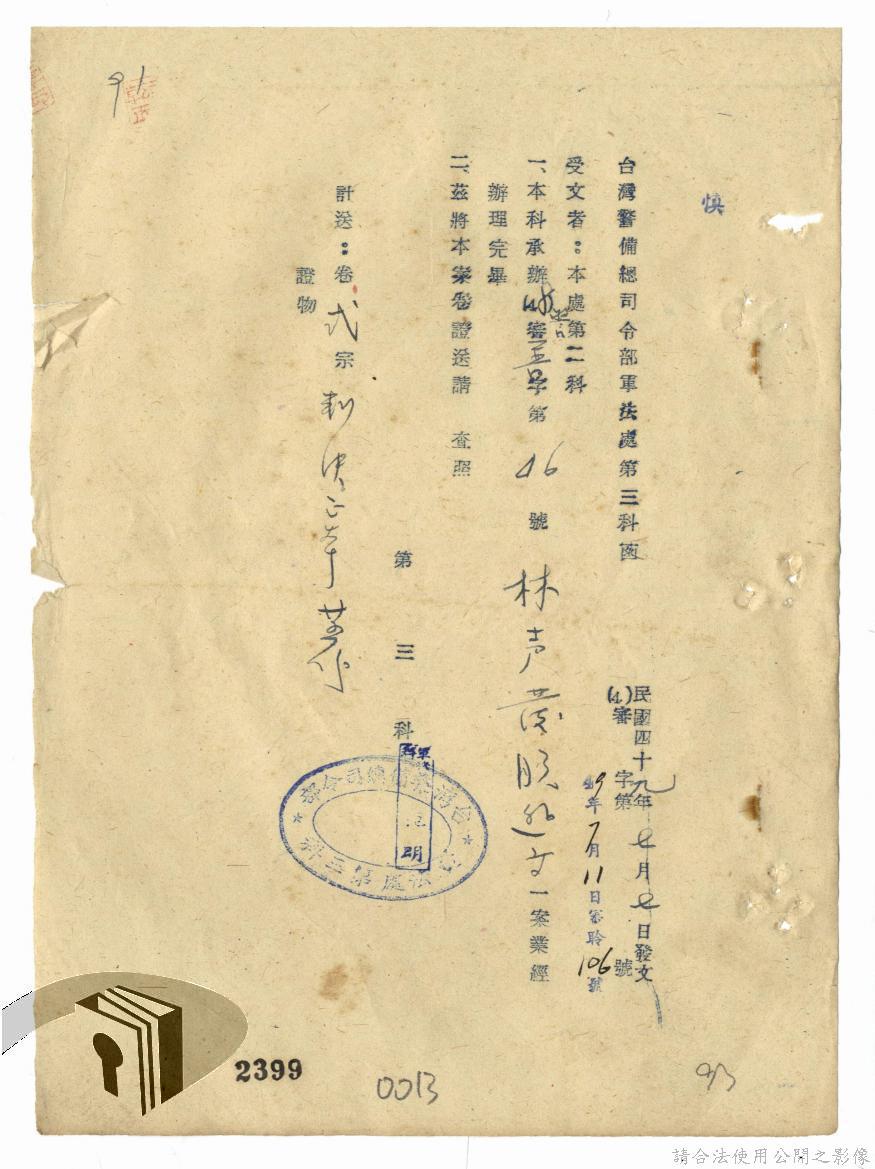 慎
台灣警備總司令部軍法處第三科函
民國四十九年七月七日發文
(4)審 字第 號
49年7月11日審聆106號
受文者：本處第二科
一、本科承辦 審 字第46號林声發 一案業經
辦理完畢
二、茲將本案卷證送請 查照
第三科
計送：卷弍宗 判決正本
證物
台灣警備總司令部
軍法處第三科
91
2399
0013
93
請合法使用公開之影像